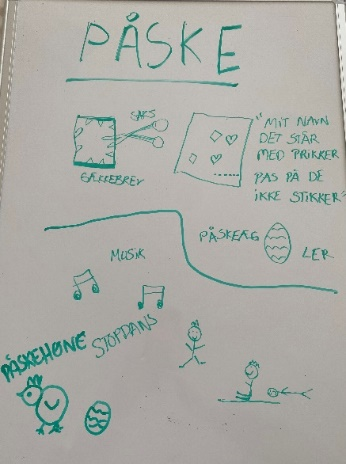 PÅSKE
SAKS
GÆKKEBREV
"MIT NAVN
DET STÅR
MED PRIKKER
PAS PÅ DE
IKKE STIKKER"
PÅSKEÆG
LER
MUSIK
PÅSKEHØNE STOPDANS